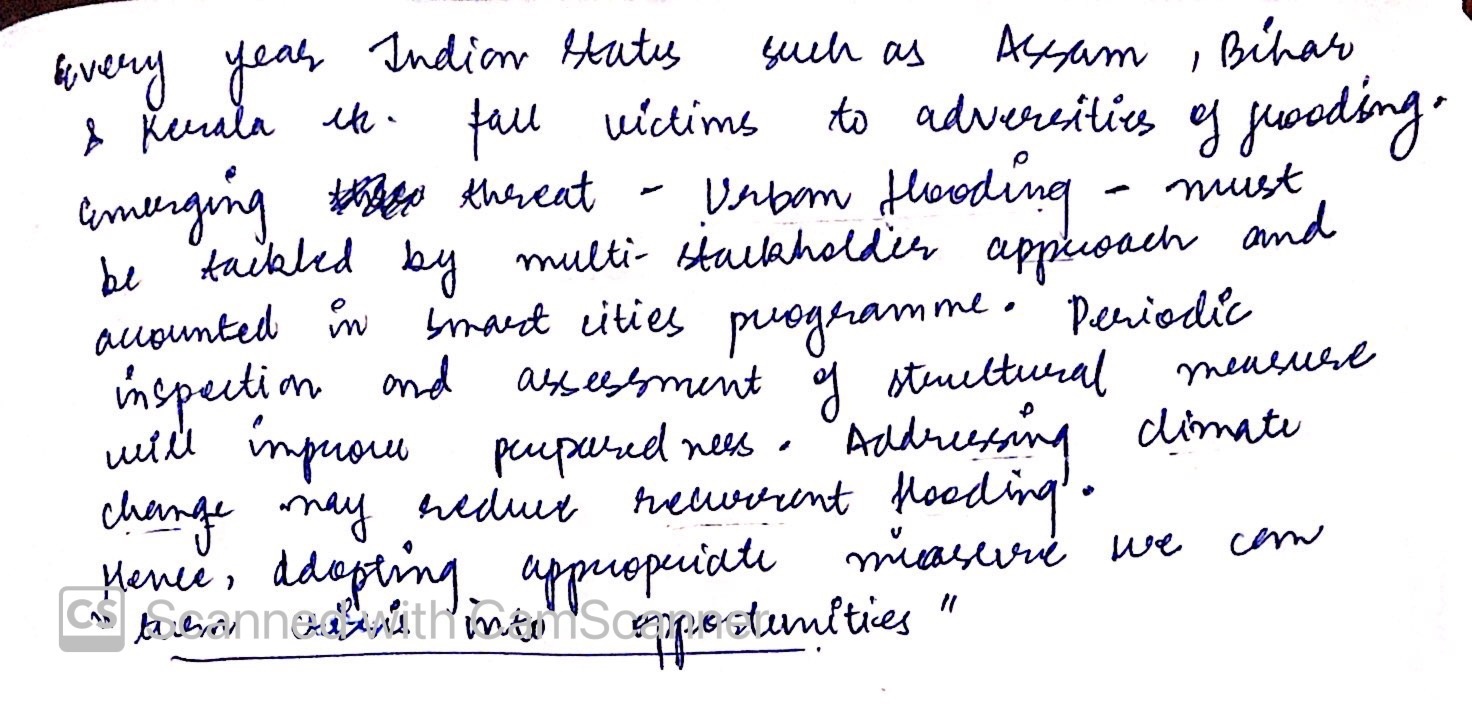 Every year Indian States such as Assam, Bihar
& Kerala etc. fall victims to adversities of flooding.
Emerging threat - Urban flooding - must
be tackled by multi-stackholder approach and
accounted in smart cities programme. Periodic
inspection and assessment of structural measure
will improve preparedness. Addressing climate
change may reduce recurrent flooding.
Hence, Adopting appropriate measure we can
"turn crisis into opportunities"
CS Scanned with CamScanner